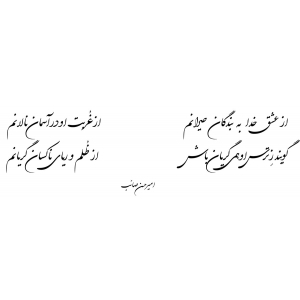 از عشق خدا به بندگان حیرانم
از غربت او در آسمان نالانم
گویند ز ترس او همی گریان باش
از ظلم و ریای ناکسان گریانم
امیرحسن صائب